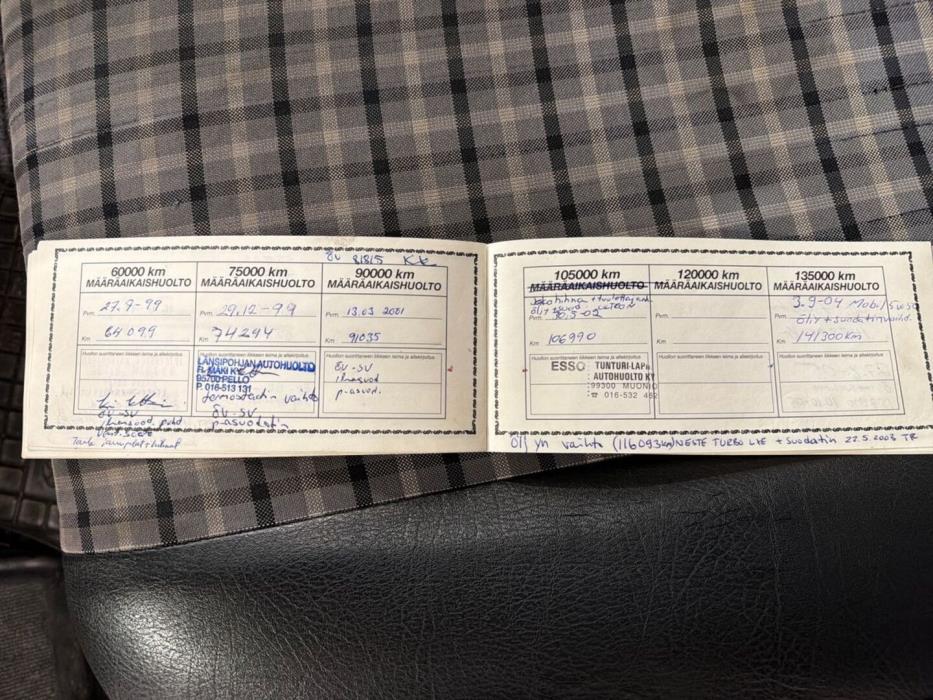 ÖV 81815 KK
60000 km
MÄÄRÄAIKAISHUOLTO
Pvm. 27.9-99
Km 64 099
Huollon suorittaneen liikkeen leima ja allekirjoitus
ÖV-SV
75000 km
MÄÄRÄAIKAISHUOLTO
Pvm. 29.12-99
Km 74294
Huollon suorittaneen liikkeen leima ja allekirjoitus
LÄNSIPOHJAN AUTOHUOLTO
MÄKI KY
95700 PELLO
P. 016-513 131
ÖV-SV
p-asuodatin
90000 km
MÄÄRÄAIKAISHUOLTO
Pvm. 13.03 2001
Km 91035
Huollon suorittaneen liikkeen leima ja allekirjoitus
ÖV-SV
ilmasuod
p-asuod.
105000 km
MÄÄRÄAIKAISHUOLTO
Pvm. 10.5-02
Km 106990
Huollon suorittaneen liikkeen leima ja allekirjoitus
ESSO TUNTURI-LAPIN
AUTOHUOLTO KY
99300 MUONIO
☎ 016-532 462
120000 km
MÄÄRÄAIKAISHUOLTO
Pvm.
Km
Huollon suorittaneen liikkeen leima ja allekirjoitus
135000 km
MÄÄRÄAIKAISHUOLTO
3.9-04 Mobil 5w50
Pvm. Öljy+suodatinvaihd.
Km 141300km
Huollon suorittaneen liikkeen leima ja allekirjoitus
Öljyn vaihto (116093km) NESTE TURBO LXE + suodatin 22.5.2003 TR